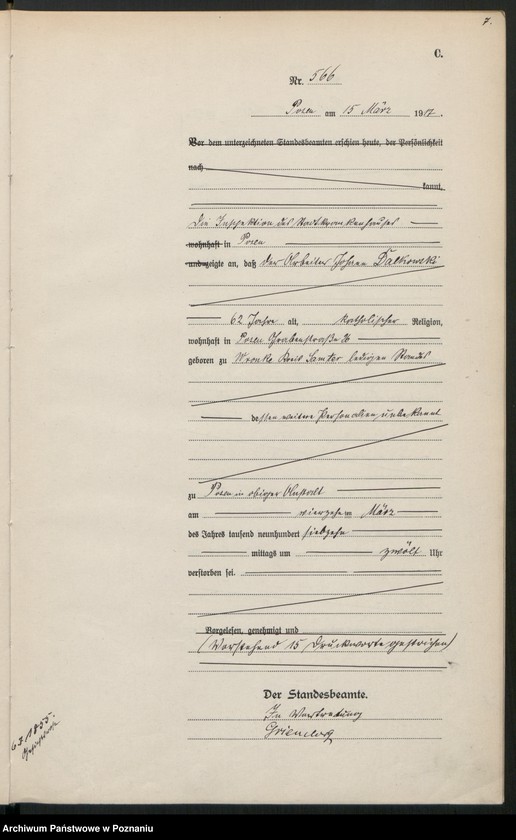 7.
C.
Nr. 566
Posen am 15 März 1917.
Vor dem unterzeichneten Standesbeamten erschien heute, der Persönlichkeit
nach
kannt,
Die Inspektion des Stadtkrankenhauses
wohnhaft in Posen
und zeigte an, daß der Arbeiter Johann Dalkowski
62 Jahre alt, katholischer Religion,
wohnhaft in Posen Grabenstraße 26
geboren zu Wronke Kreis Samter ledigen Standes
dessen weitere Personalien unbekannt
zu Posen in obiger Anstalt
am vierzehn März
des Jahres tausend neunhundert siebzehn
mittags um zwölf Uhr
verstorben sei.
Vorgelesen, genehmigt und
(Vorstehend 15 Druckworte gestrichen)
Der Standesbeamte.
In Vertretung
1855.
Archiwum Państwowe w Poznaniu